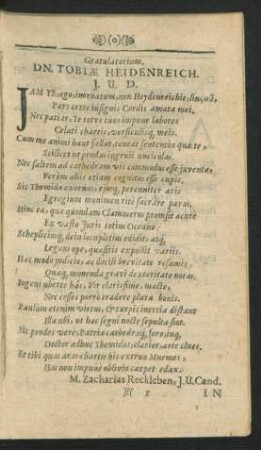 Gratulatorium.
DN. TOBIÆ HEIDENREICH.
J. U. D.
JAM TE, ego, inornatum, non Heydenreichie, linquã,
Pars certe insignis Cordis amata mei.
Nec patiar, te tot tuos impune labores
Celari chartis, versiculisq; meis.
Cum me animi haut fallat, teneat sententia quæ te,
Scilicet ut prodas ingruit auriculas.
Nec saltem ad cathedram vis commodus esse juventæ,
Verùm aliis etiam cognitus esse cupis.
Sic Themidos externos, ejusq; perenniter aris
Egregium monimen tute sacrare paras.
Hinc ea, quæ quondam Clammerus promsit acutè
Ex vasto Juris totius Oceano,
Schepliciusq;, dein locupletim edidit; atq;
Legum ope, quæsitis exposuit variis.
Hoc modo judicio, ac docili brevitate resumis,
Quæq; movenda gravi dexteritate notas.
Ingenî uberte hâc, Vir clarissime, macte,
Nec cesses porrò tradere plura boni.
Paulum etenim virtus, & turpis inertia distant
Illa ubi, ut hæc segni nocte sepulta sint.
Sic prodes verè, Patriæ cathedræq;, foroq;,
Doctor adhuc Themidos, clarior, arte clues,
Et tibi quæ aras chartis his extrua Mnemos,
Has non impunè oblivio carpet edax.
M. Zacharias Reckleben, J. U. Cand.
IN